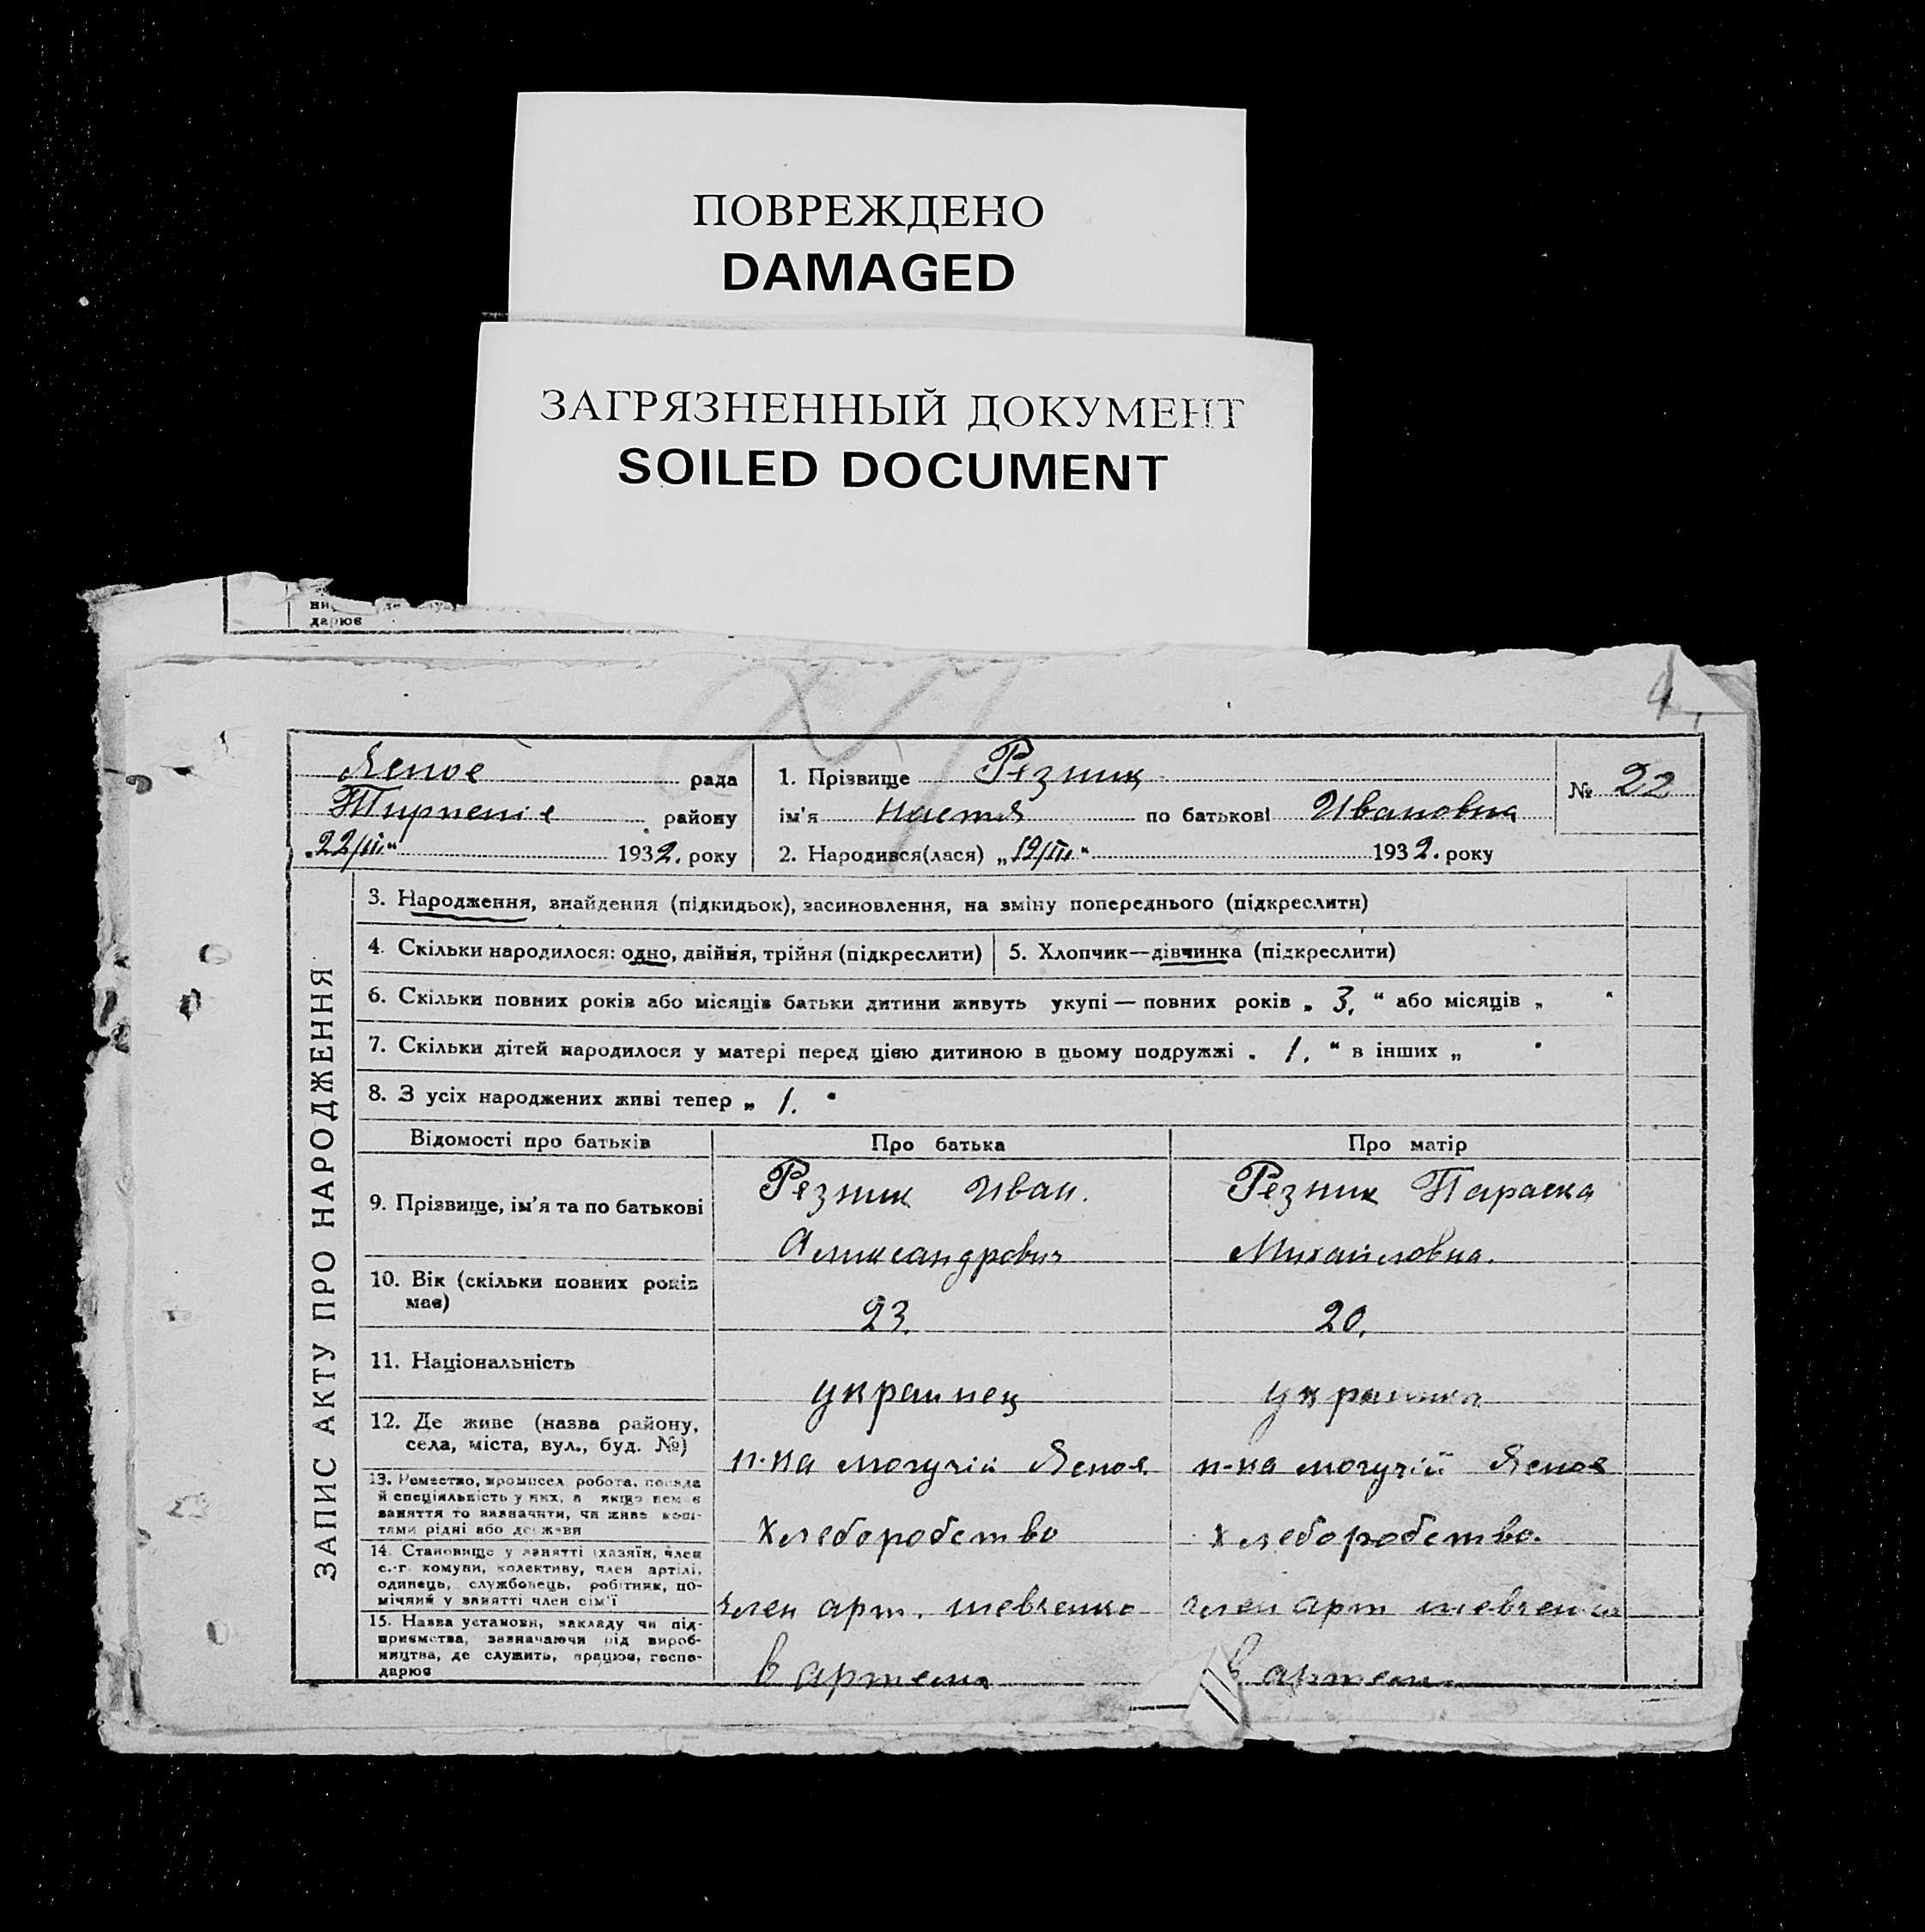 ПОВРЕЖДЕНО
DAMAGED
ЗАГРЯЗНЕННЫЙ ДОКУМЕНТ
SOILED DOCUMENT
дарює
рада
району
"22/III" 1932. року
1. Прізвище Резник
ім'я Настя по батькові Ивановна
2. Народився(лася) „19/III" 1932. року
№ 22
ЗАПИС АКТУ ПРО НАРОДЖЕННЯ
3. Народження, знайдення (підкидьок), засиновлення, на зміну попереднього (підкреслити)
4. Скільки народилося: одно, двійня, трійня (підкреслити) 5. Хлопчик—дівчинка (підкреслити)
6. Скільки повних років або місяців батьки дитини живуть укупі — повних років „ 3. " або місяців „ "
7. Скільки дітей народилося у матері перед цією дитиною в цьому подружжі „ 1. " в інших „ "
8. З усіх народжених живі тепер „ 1. "
Відомості про батьків Про батька Про матір
9. Прізвище, ім'я та по батькові
Резник Иван.
Александрович
Резник Параска
Михайловна.
10. Вік (скільки повних років
має)
23. 20.
11. Національність
украинец украинка
12. Де живе (назва району,
села, міста, вул., буд. №)
п-ка могучий п-ка могучий
13. Ремество, промисел робота, посада
й спеціяльність у них, а якщо немає
заняття то визначити, чи живе кош-
тами рідні або держави
Хлеборобство хлеборобство.
14. Становище у занятті (хазяїн, член
с.-г. комуни, колективу, член артілі,
одинець, службовець, робітник, по-
мічний у занятті член сім'ї
член арт. шевченко член арт шевченко
15. Назва установи, закладу чи під-
приємства, зазначаючи рід вироб-
ництва, де служить, працює, госпо-
дарює
в артели в артели